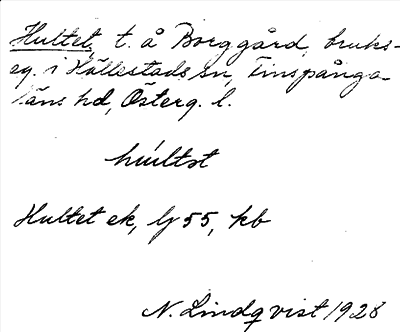 Hultet, t. å Borggård, bruks-
eg. i Hällestads sn, Finspånga
läns hd, Österg. l.
húltet
Hultet ek, Gs 55, kb
N. Lindqvist 1928